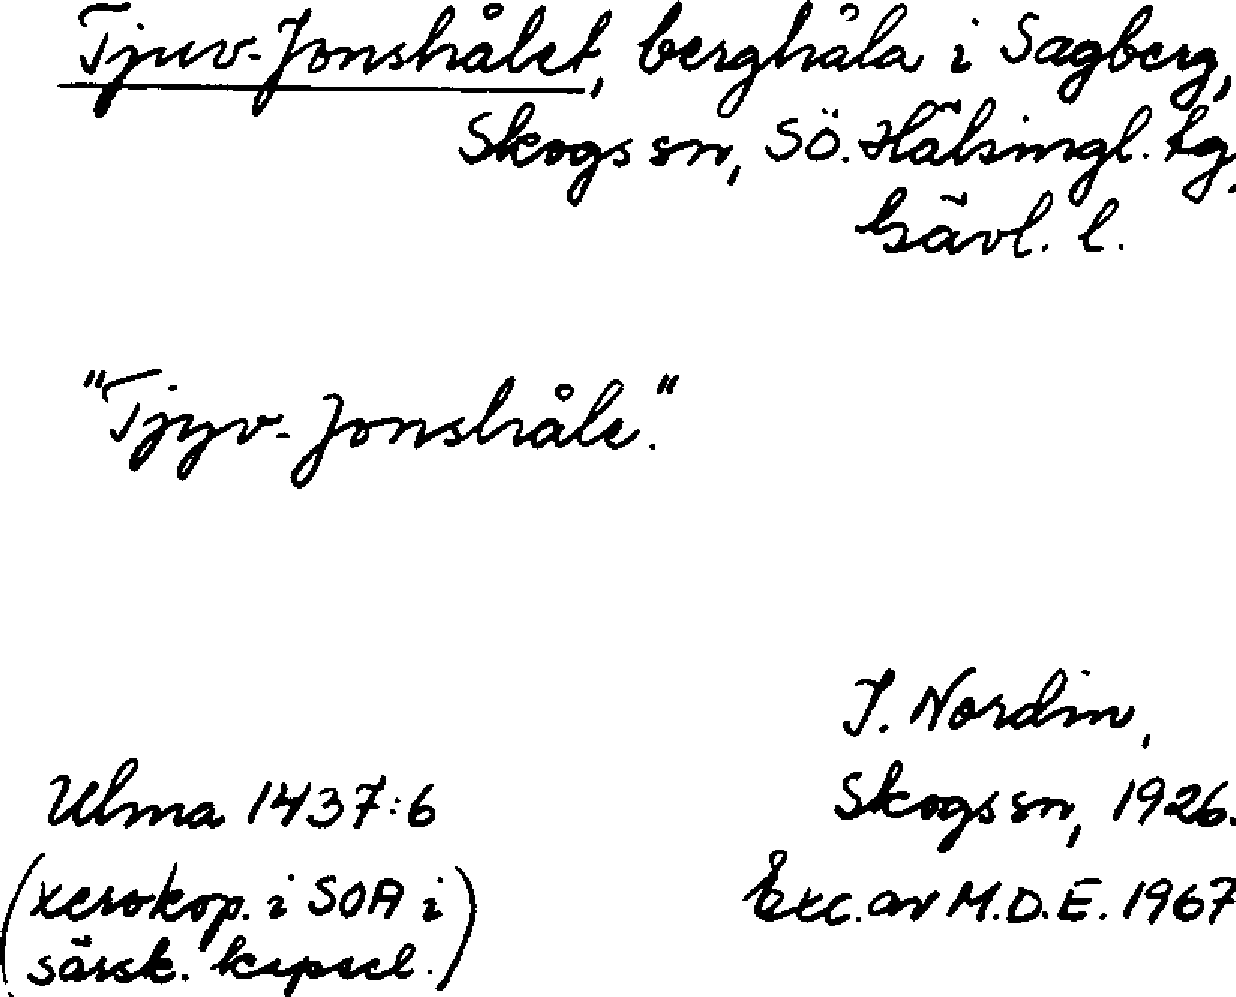 Tjuv-Jonshålet, berghåla i Sagberg,
Skogs sn, Sö. Hälsingl. tg,
Gävl. l.
"Tjyv-Jonshåle."
J. Nordin,
Skogs sn, 1926.
Ulma 1437:6
Exc. av M.D.E. 1967
(xerokop. i SOA i
särsk. kapsel.)